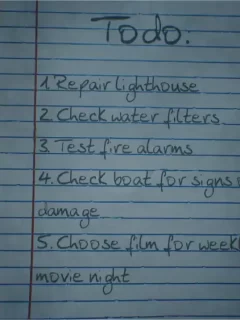 Todo:
1. Repair lighthouse
2. Check water filters
3. Test fire alarms
4. Check boat for signs
damage
5. Choose film for
movie night